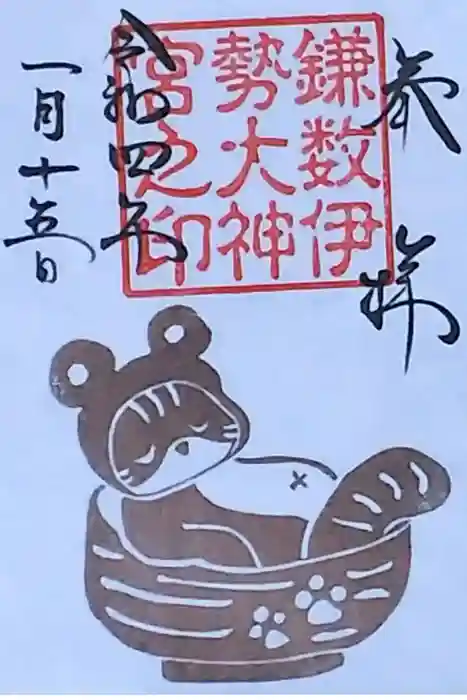 参拝
鎌数伊
勢大神
宮之印
令和四年
一月十五日